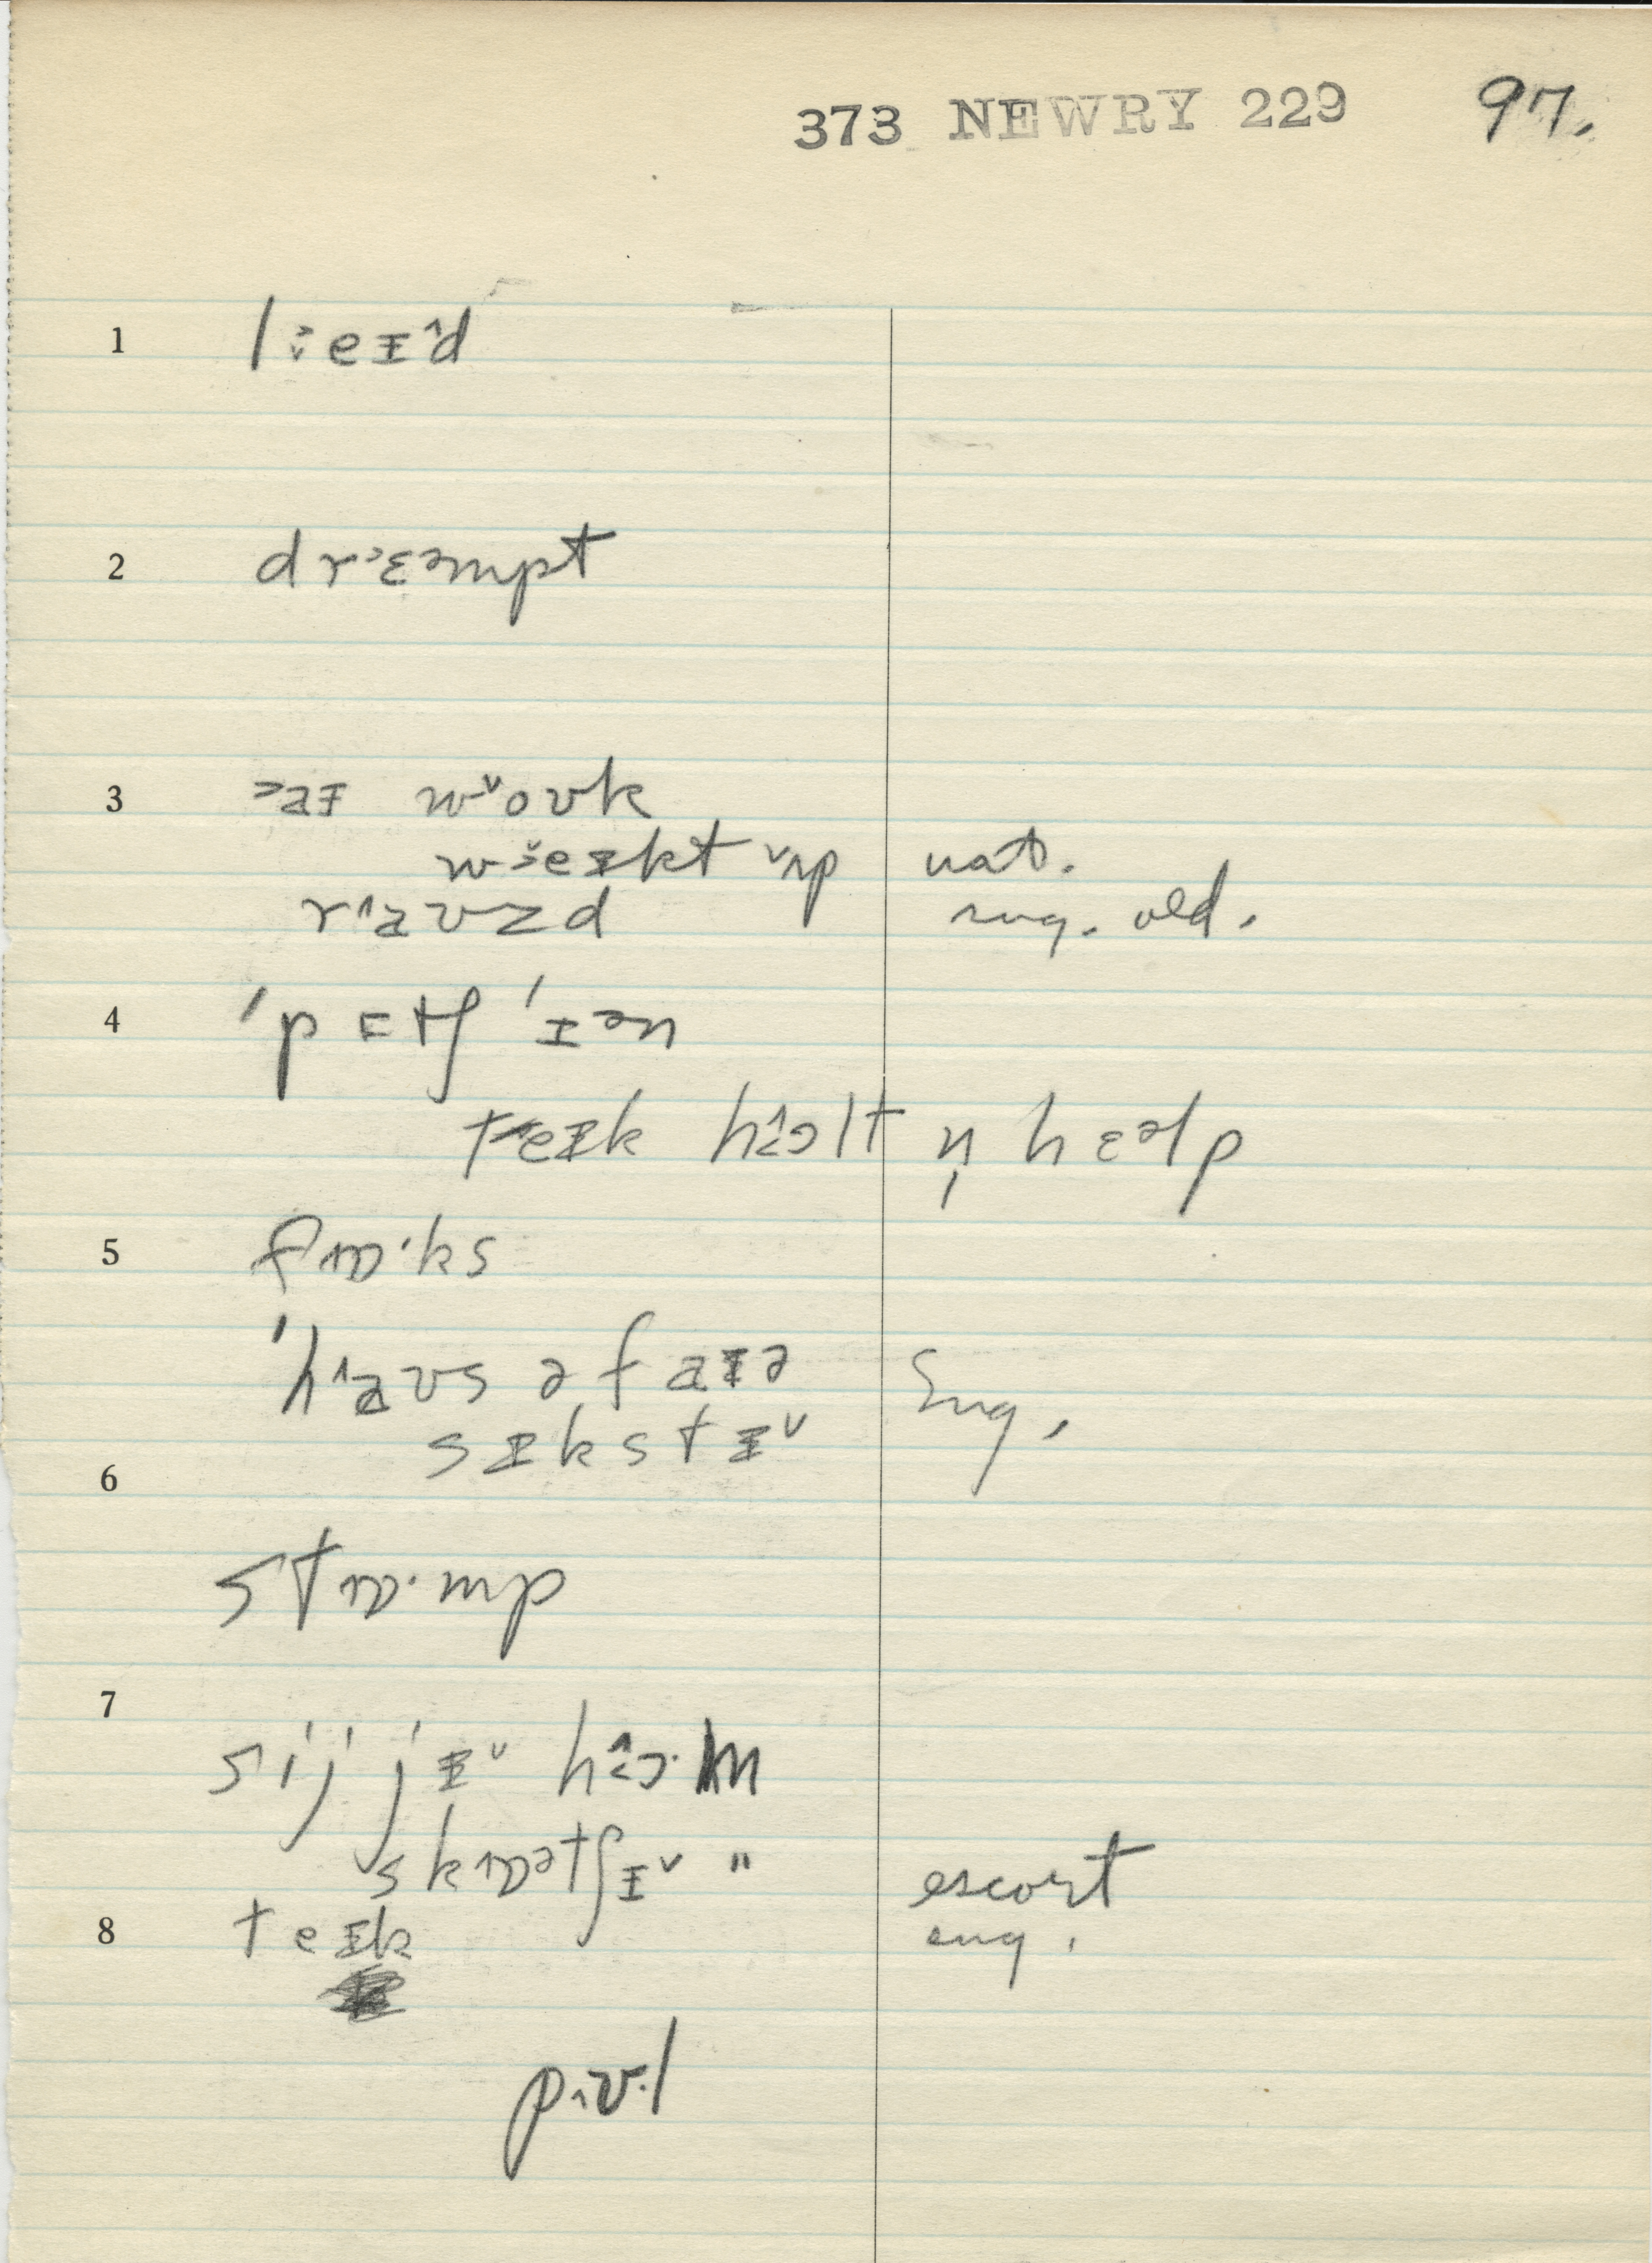 373 NEWRY 229 97.
1 l˃eɪ˄d
2 dr˃ɛəmpt
3 ˃aɪ w˅oʊk
w˃eɪkt ˅ʌp nat.
r˄aʊzd sug. old.
4 ˈpɪtʃ ˈɪən
teɪk h˄ɔlt n̩ hɛəlp
5 fɒ·ks
ˈh˄aʊs ə faɪə Sug.
sɪkstɪ˅
6
stɒ·mp
7
sij jɪ˅ h˄ɔ·m
skɒətʃɪ˅ " escort
8 teɪk sug.
pʊ·l